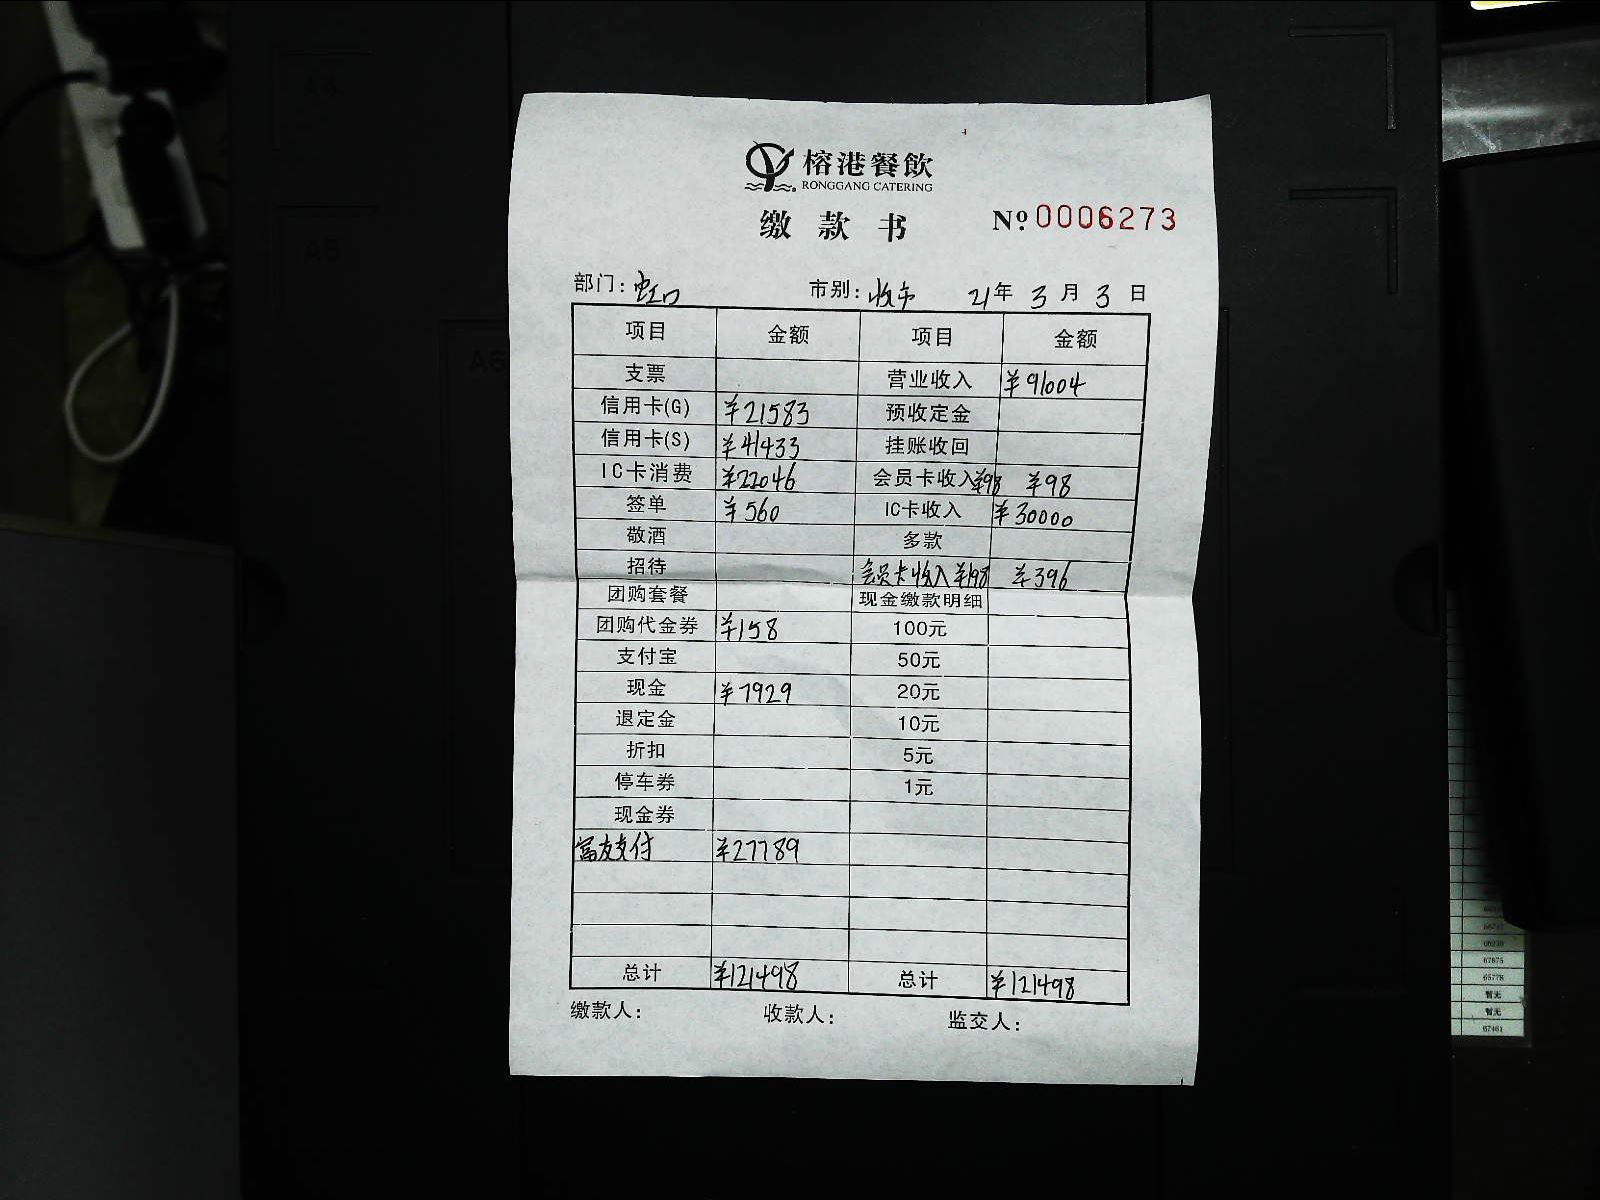 榕港餐飲
RONGGANG CATERING
缴款书 Nº 0006273
部门：虹口 市别：收市 21年 3月 3日
项目 金额 项目 金额
支票 营业收入 ¥91004
信用卡(G) ¥21583 预收定金
信用卡(S) ¥41433 挂账收回
IC卡消费 ¥22046 会员卡收入¥98 ¥98
签单 ¥560 IC卡收入 ¥30000
敬酒 多款
招待 会员卡收入¥198 ¥396
团购套餐 现金缴款明细
团购代金券 ¥158 100元
支付宝 50元
现金 ¥7929 20元
退定金 10元
折扣 5元
停车券 1元
现金券
富友支付 ¥27789
总计 ¥121498 总计 ¥121498
缴款人： 收款人： 监交人：
A6
67875
65778
暂无
暂无
67461